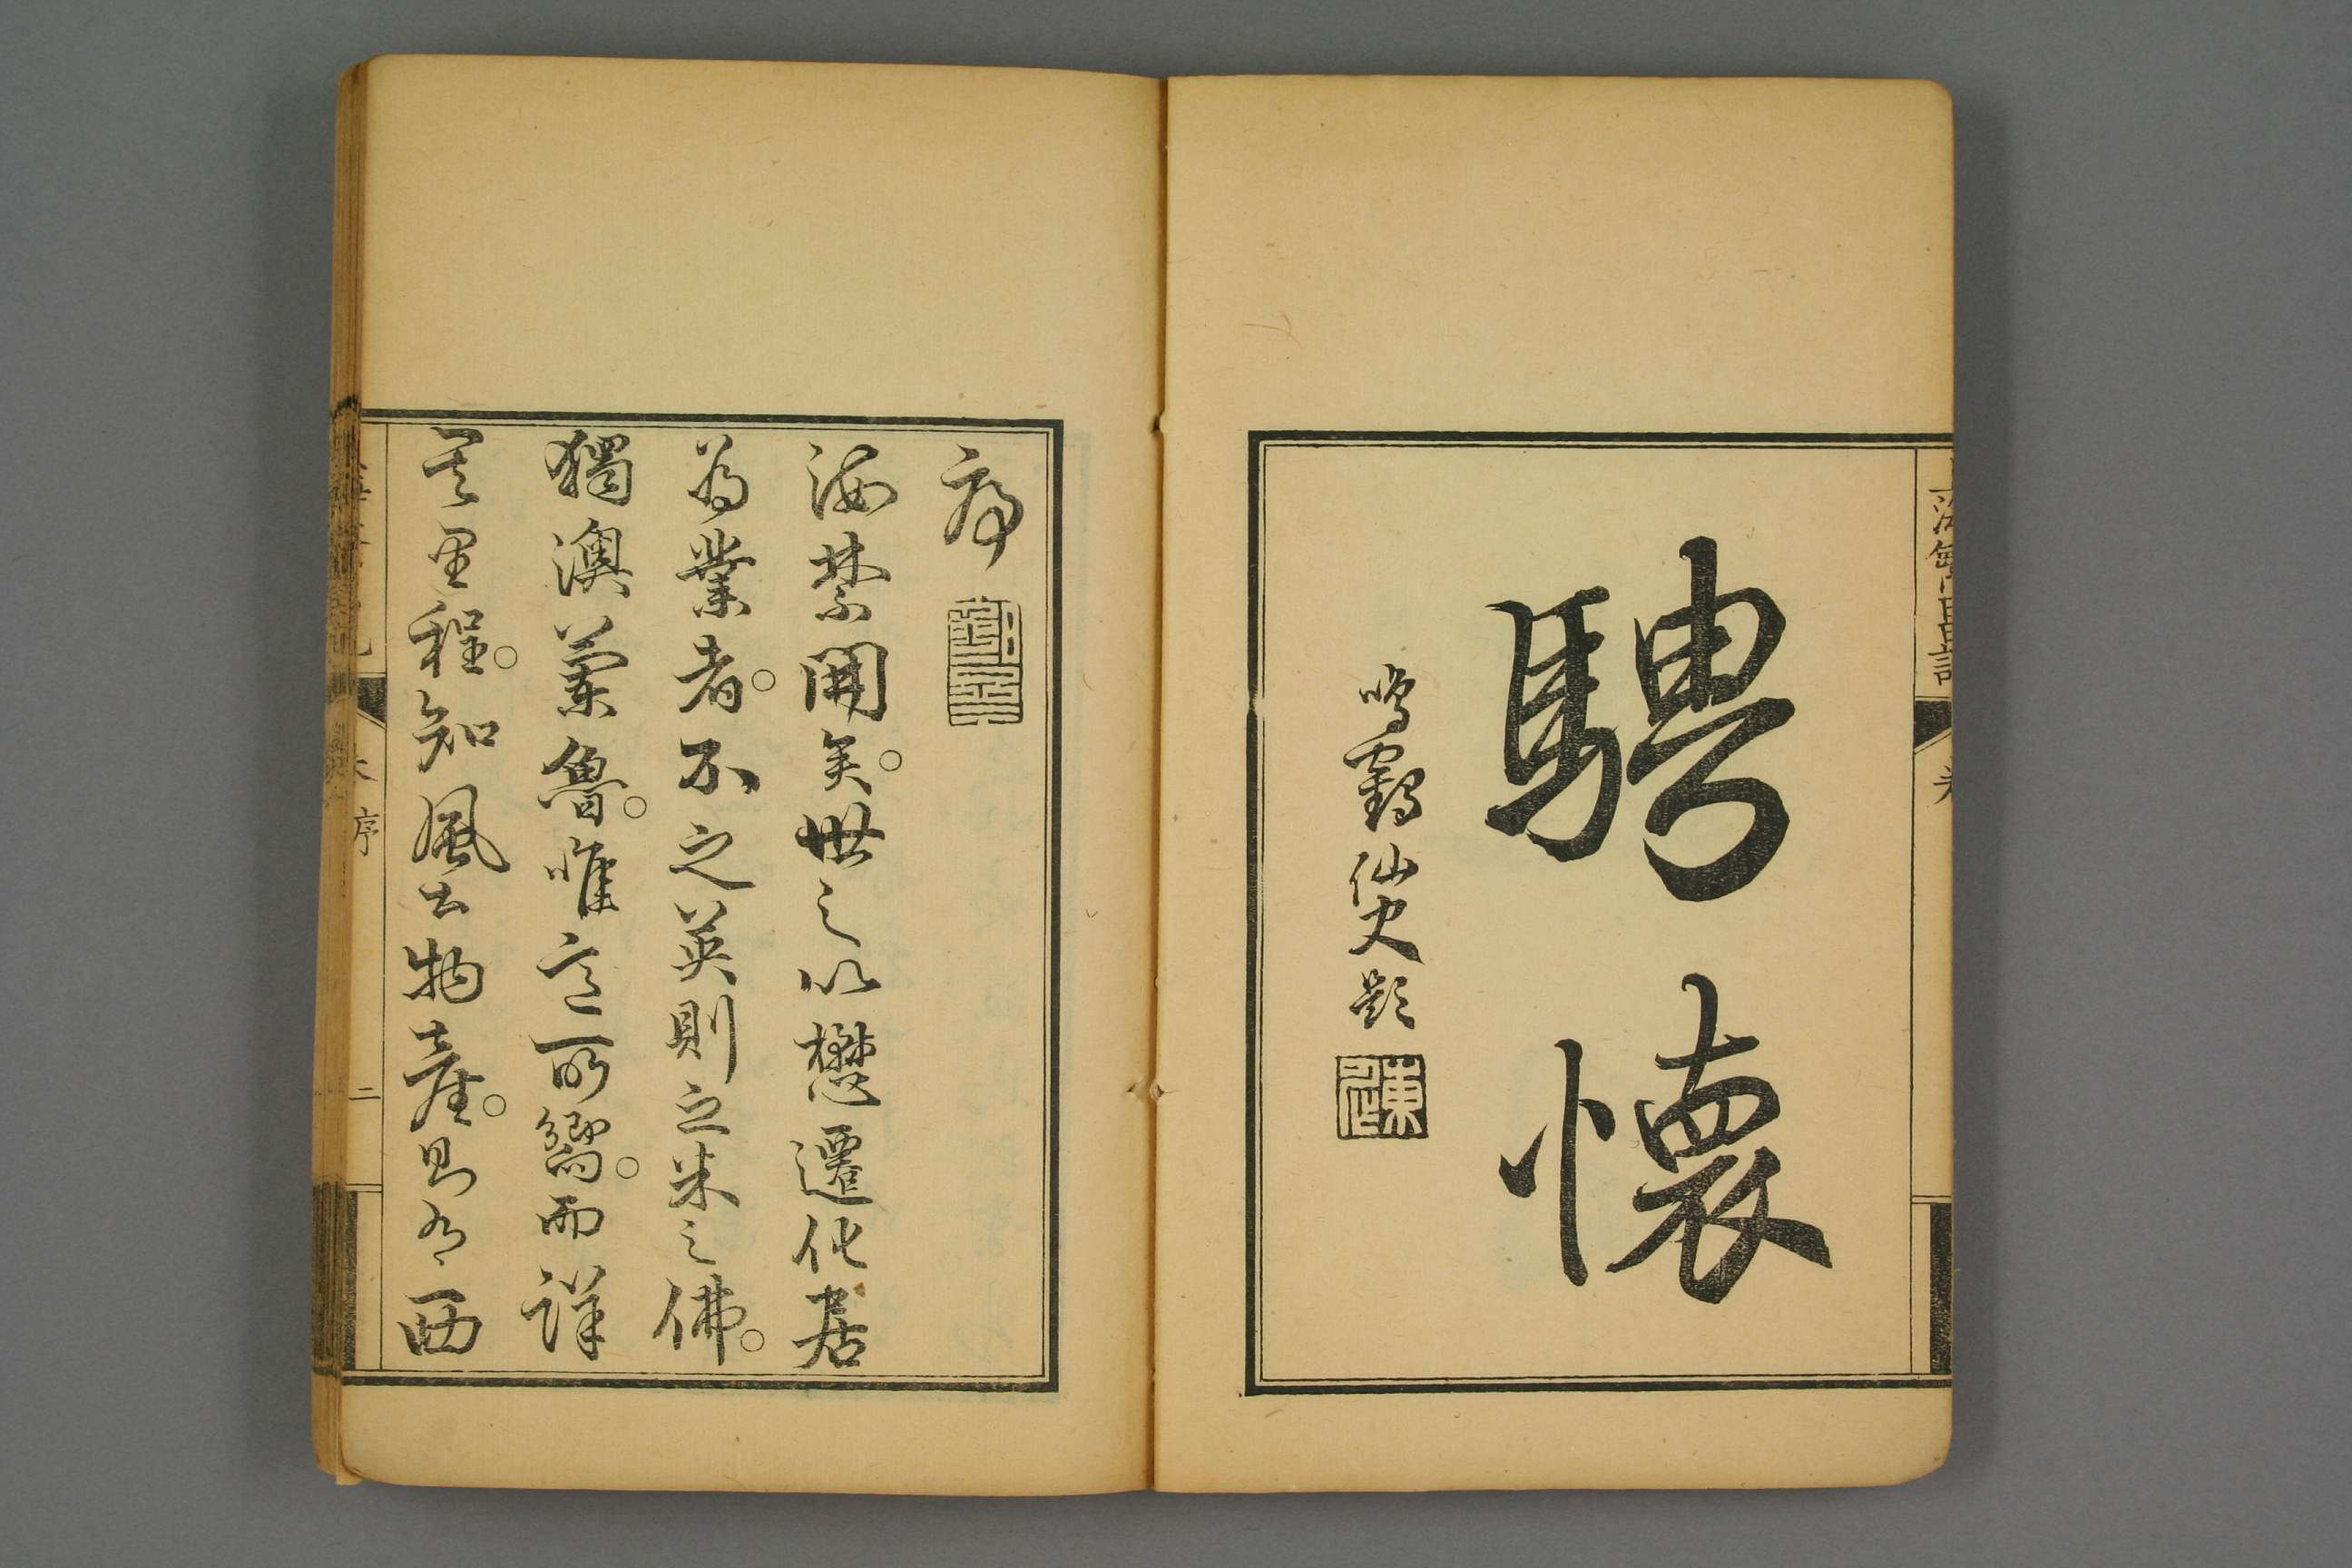 騁懷
鳴鶴仙史題
序
海禁開矣世之以懋遷化居
為業者不之英則之米之佛
獨澳蘭魯唯意所嚮而詳
其里程知風土物產則有西
序
二